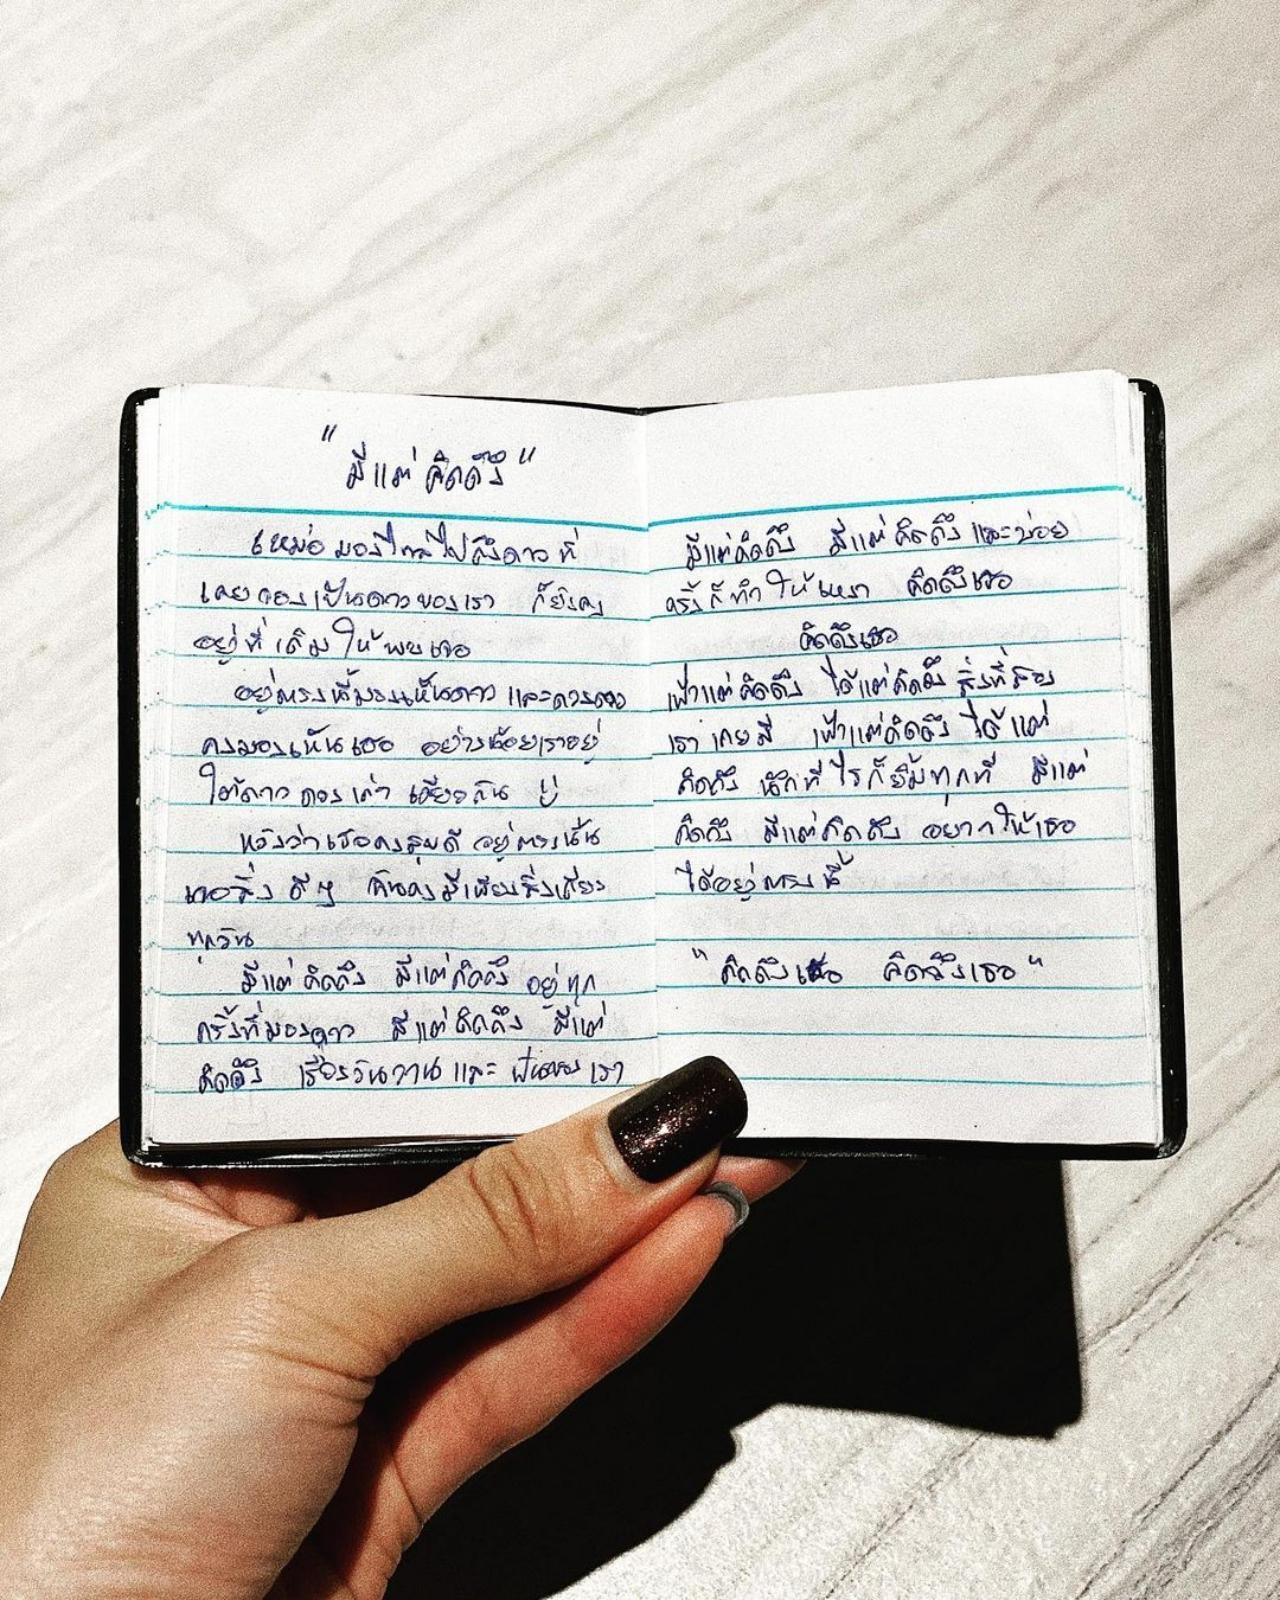 "มีแต่คิดถึง"
เหม่อมองไกลไปถึงดาวที่
เคยจองเป็นดาวของเรา ก็ยังคง
อยู่ที่เดิมให้พบเจอ
อยู่ตรงนี้มองเห็นดาว และดวงดาว
คงมองเห็นเธอ อย่างน้อยเราอยู่
ใต้ดาวดวงเก่า เดียวกัน
หวังว่าเธอคงสุขดี อยู่ตรงนั้น
เจอสิ่งดีๆ ฉันคงมีเพียงสิ่งเดียว
ทุกวัน
มีแต่คิดถึง มีแต่คิดถึง อยู่ทุก
ครั้งที่มองดาว มีแต่คิดถึง มีแต่
คิดถึง เรื่องวันวานและฝันของเรา
มีแต่คิดถึง มีแต่คิดถึง และบ่อย
ครั้งก็ทำให้เหงา คิดถึงเธอ
คิดถึงเธอ
เฝ้าแต่คิดถึง ได้แต่คิดถึง สิ่งที่สอง
เราเคยมี เฝ้าแต่คิดถึง ได้แต่
คิดถึง นึกทีไรก็ยิ้มทุกที มีแต่
คิดถึง มีแต่คิดถึง อยากให้เธอ
ได้อยู่ตรงนี้
"คิดถึงเธอ คิดถึงเธอ"